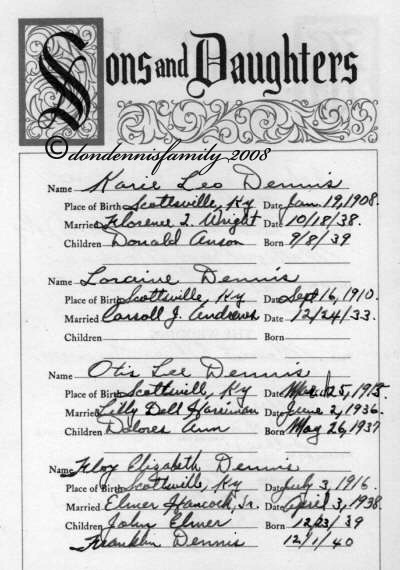 Sons and Daughters
© dondennisfamily 2008
Name Karie Leo Dennis
Place of Birth Scottsville, Ky Date Jan. 19, 1908.
Married Florence I. Wright Date 10/18/38.
Children Donald Anson Born 9/8/39
Name Loraine Dennis
Place of Birth Scottsville, Ky Date Sept 16, 1910.
Married Carsoll J. Andrews Date 12/24/33.
Children Born
Name Otis Lee Dennis
Place of Birth Scottsville, Ky Date 25, 1913
Married Lilly Dell Date June 2, 1936.
Children Dolores Ann Born May 26, 1937
Name Floy Elizabeth Dennis
Place of Birth Scottsville, Ky Date July 3, 1916.
Married Elmer Hancock, Jr. Date April 3, 1938.
Children John Elmer Born 12/23/39
Franklin Dennis 12/1/40